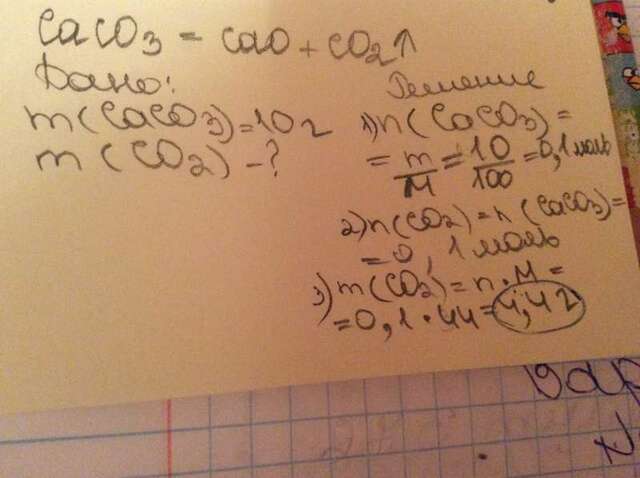 CaCO3 = CaO + CO2↑
Дано:
m(CaCO3)=10г
m(CO2)-?
Решение
1) n(CaCO3)=
= m/M = 10/100 = 0,1 моль
2) n(CO2)=n(CaCO3)=
=0,1 моль
3) m(CO2)=n·M=
=0,1·44=4,4г